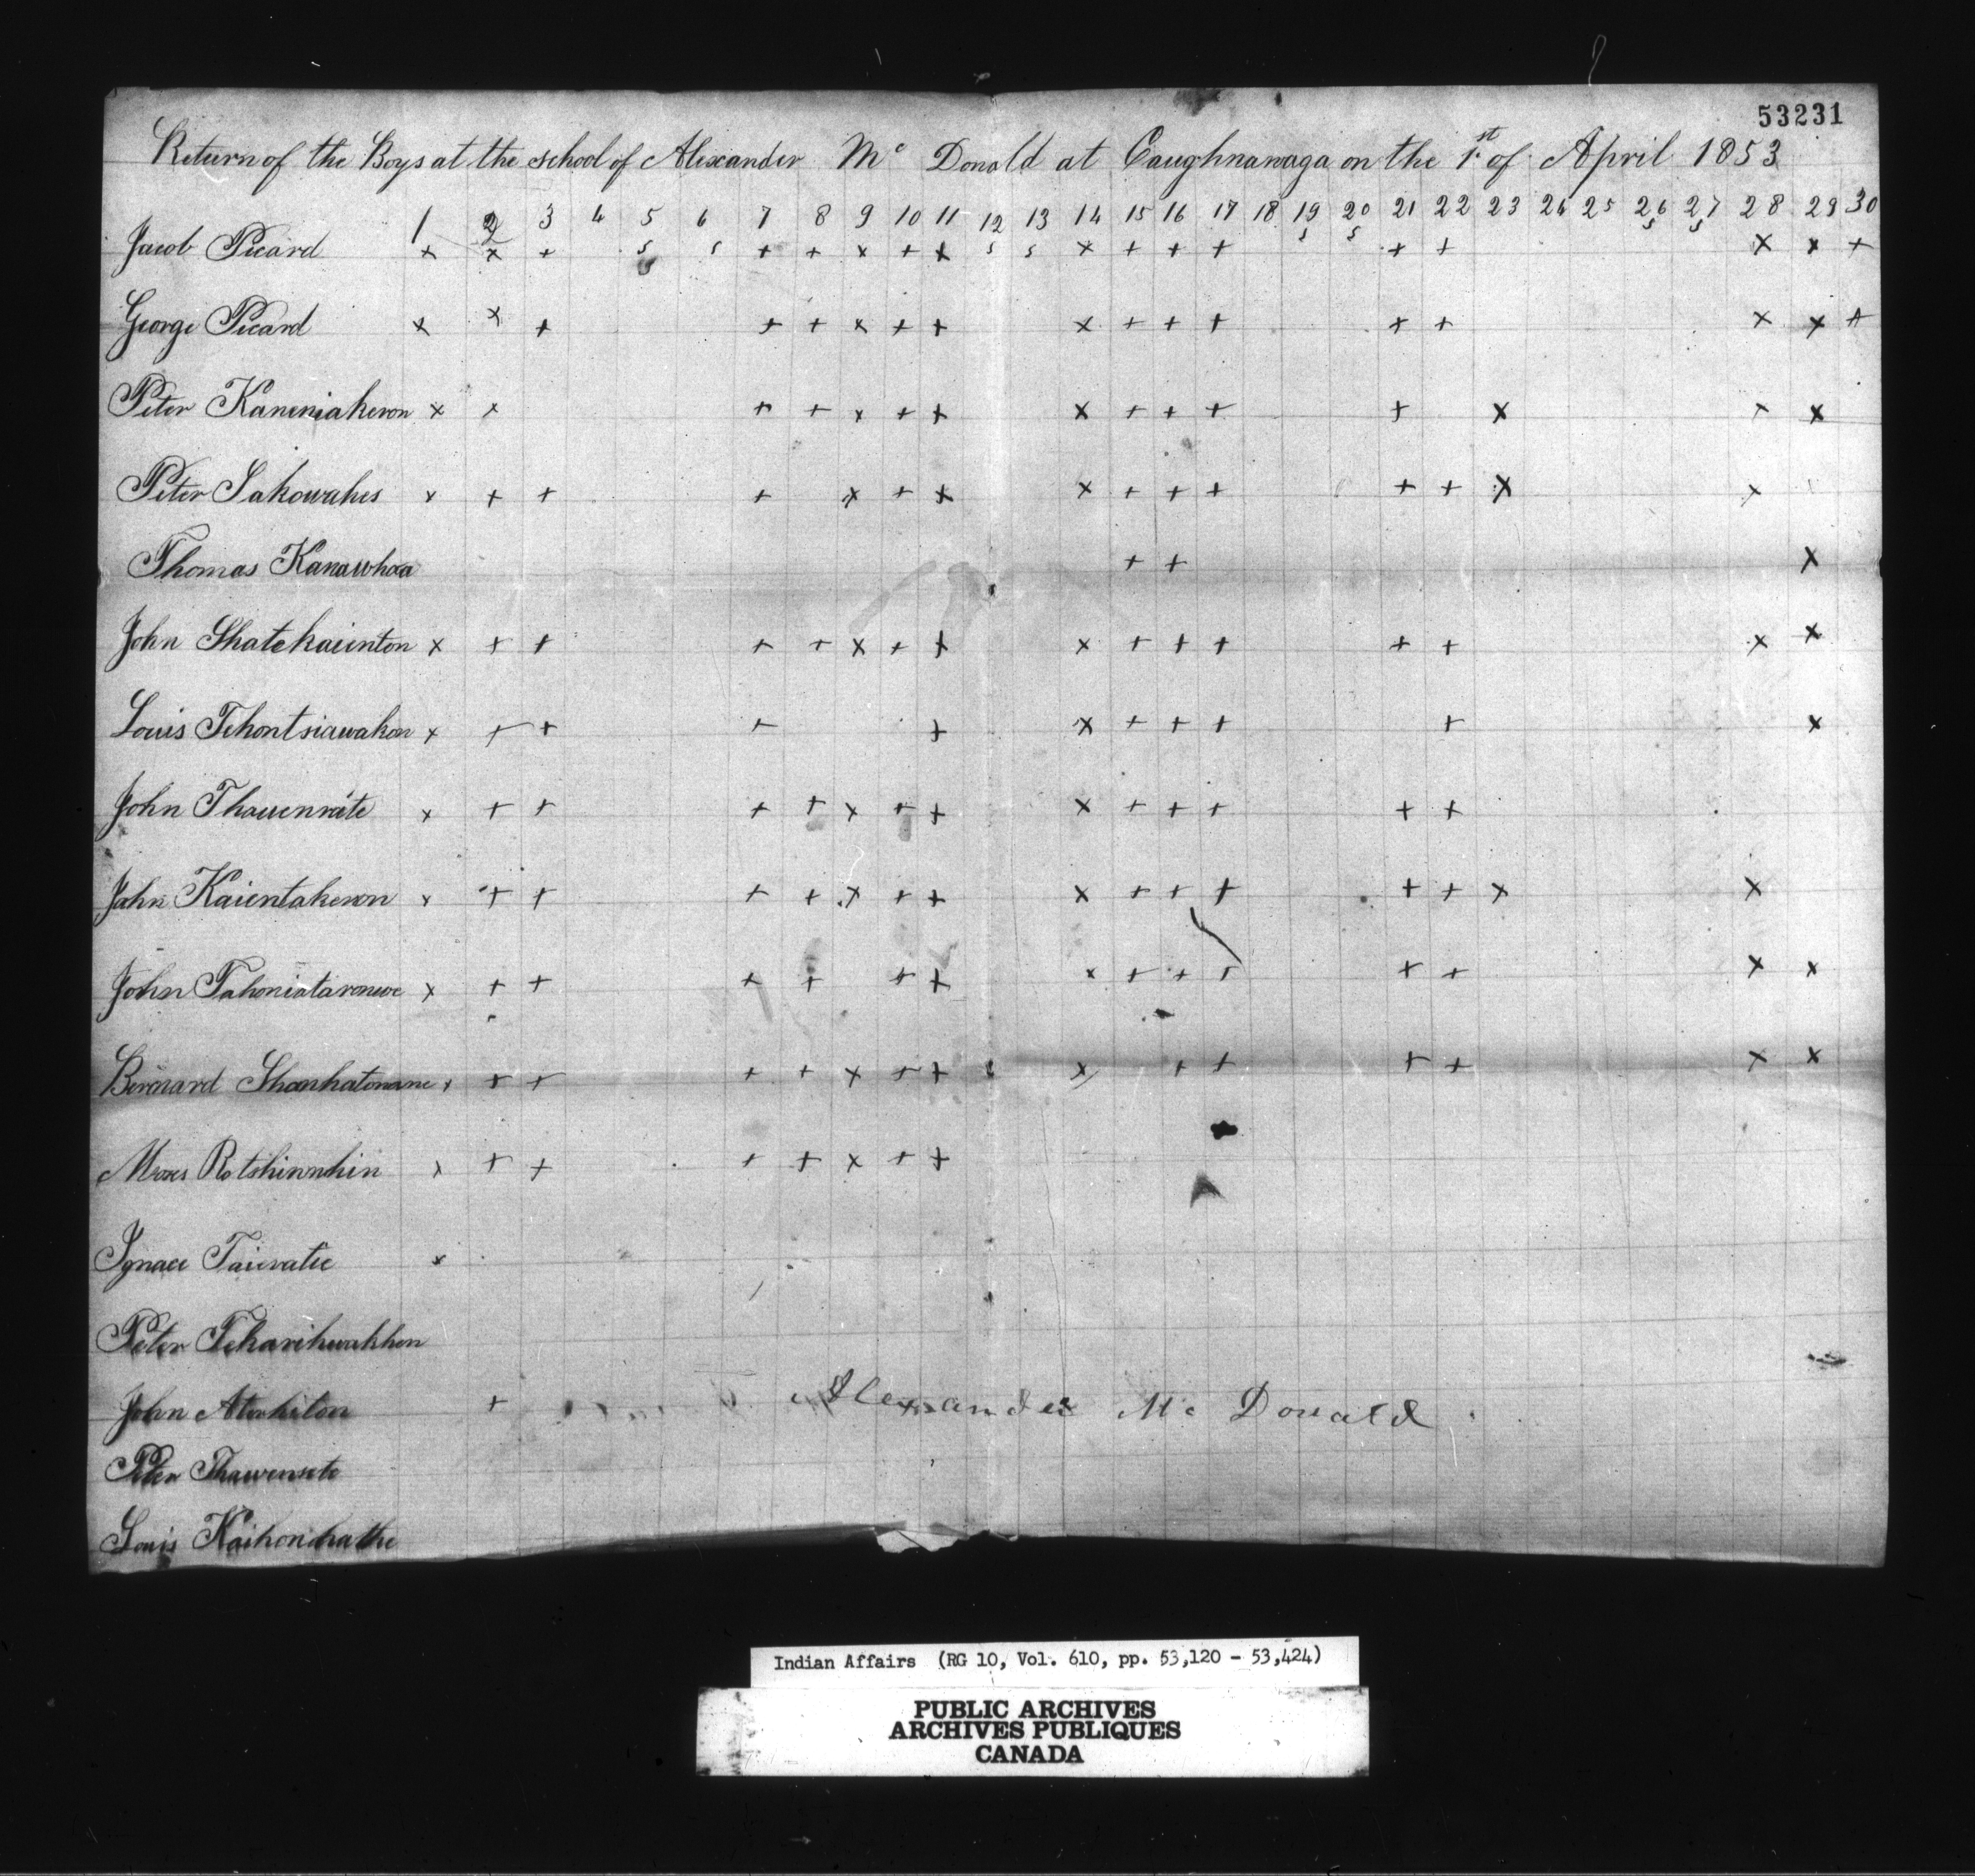 53231
Return of the Boys at the school of Alexander Mc Donald at Caughnawaga on the 1st of April 1853
1 2 3 4 5 6 7 8 9 10 11 12 13 14 15 16 17 18 19 20 21 22 23 24 25 26 27 28 29 30
s s s s
Jacob Picard x x + s s + + x + + s s x + + + + + x x +
George Picard x x + + + x + + x + + + + + x x +
Peter Kaneniakeron x x + + x + + x + + + + x x x
Peter Sakowahes x + + + x + + x + + + + + x x
Thomas Kanawhoa + + x
John Shatekaiinton x + + + + x + + x + + + + + x x
Louis Tehontsiawakon x + + + + x + + + + x
John Thauenrate x + + + + x + + x + + + + +
John Kaientakeron x + + + + x + + x + + + + + x x
John Tahoniataronwe x + + + + + + x + + + + + x x
Bernard Shonhatonane x + + + + x + + x + + + + x x
Moses Rotshinnhin x + + + + x + +
Ignace Taieratie x
Peter Tekarihwakhen
John Aterhiton +
Alexander Mc Donald
Peter Thawensete
Louis Kaihonhathe
Indian Affairs (RG 10, Vol. 610, pp. 53,120 - 53,424)
PUBLIC ARCHIVES
ARCHIVES PUBLIQUES
CANADA